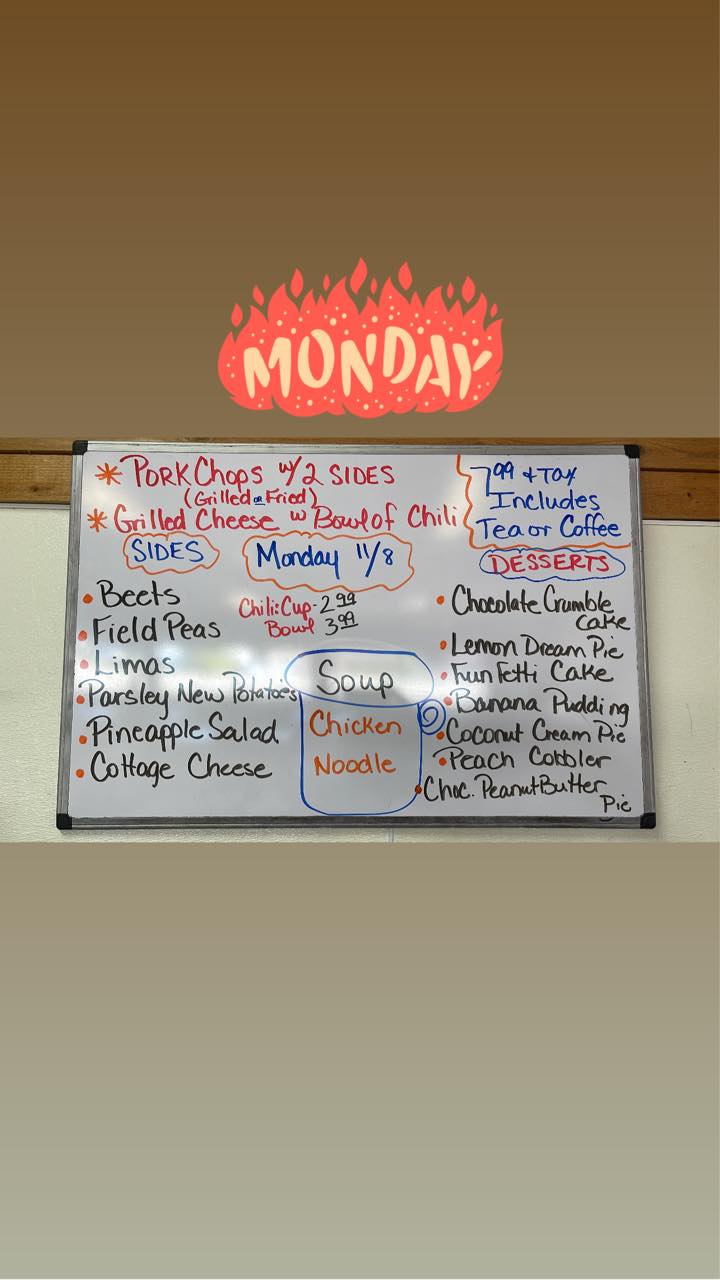 MONDAY
* PORK CHOPS w/2 SIDES
(Grilled or Fried)
* Grilled Cheese w Bowl of Chili
7.99 + TAX
Includes
Tea or Coffee
SIDES
Monday 11/8
DESSERTS
• Beets
• Field Peas
• Limas
• Parsley New Potatoes
• Pineapple Salad
• Cottage Cheese
Chili: Cup - 2.99
Bowl 3.99
Soup
Chicken
Noodle
• Chocolate Crumble
Cake
• Lemon Dream Pie
• Fun Fetti Cake
• Banana Pudding
• Coconut Cream Pie
• Peach Cobbler
• Choc. Peanut Butter
Pie